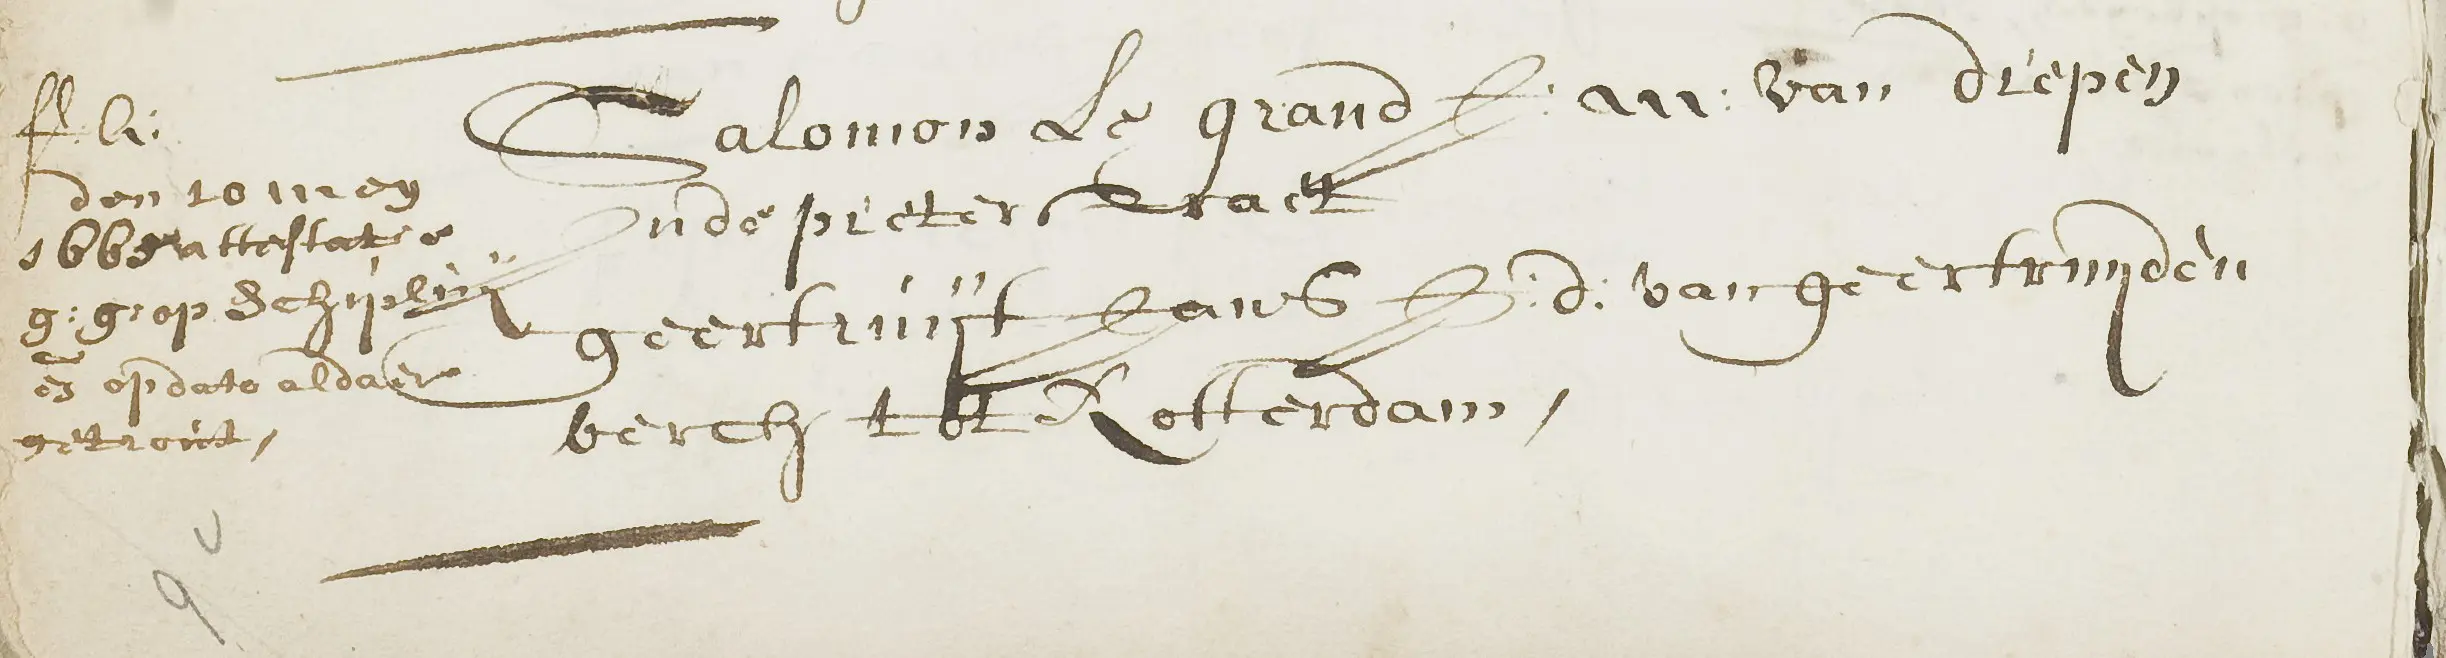 fl: a:
den 10 meij
1665 attestatie
g: g: op Schiplúij
en op dato aldaer
getrout,
Salomon Le grand J: m: van diepen
inde pieterstraet
geertruijt Jans J: d: van geertruijden
berch tot Rotterdam,